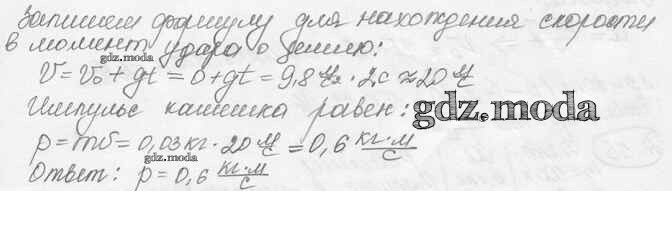 Запишем формулу для нахождения скорости
в момент удара о землю:
gdz.moda
V = V₀ + gt = 0 + gt = 9,8 м/с² · 2с ≈ 20 м/с
Импульс камешка равен:
gdz.moda
p = mv = 0,03 кг · 20 м/с = 0,6 кг·м/с
gdz.moda
Ответ: p = 0,6 кг·м/с